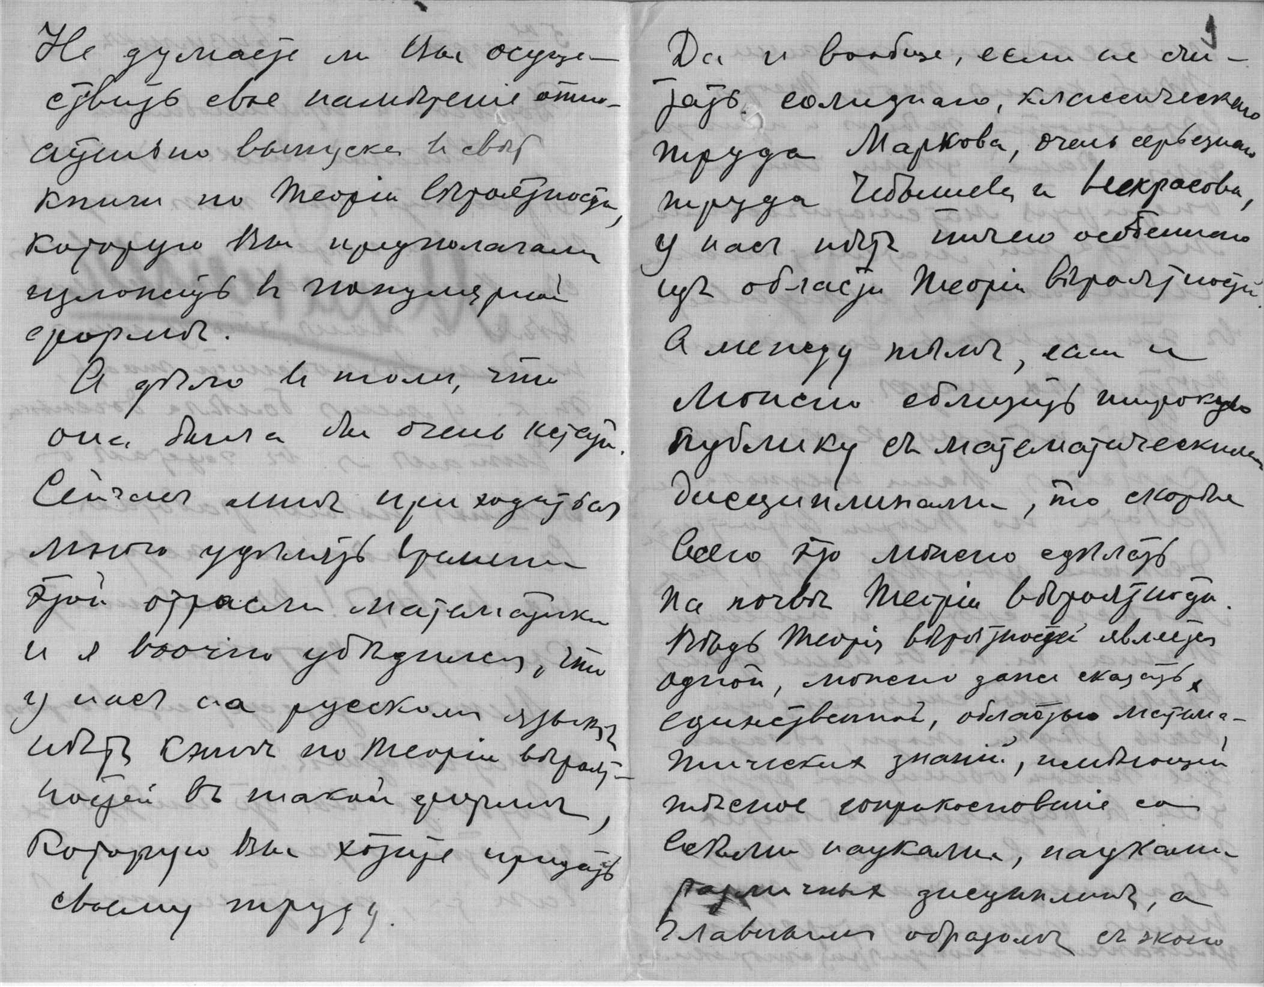 Не думаете ли Вы осуще-
ствить свое намѣреніе относ-
ительно выпуска въ свѣт
книги по Теоріи вѣроятности,
которую Вы предполагали
изложить въ популярной
формѣ.
А дѣло въ том, что
она была бы очень кстати.
Сейчас мнѣ приходиться
много удѣлять времени
этой отрасли математики
и я воочію убѣдился, что
у насъ на русском языкѣ
нѣтъ книг по Теоріи вѣроят-
ностей въ такой формѣ,
которую Вы хотите придать
своему труду.
Да и вообще, если не счи-
тать солиднаго, классическаго
труда Маркова, очень серьезнаго
труда Чебышева и Некрасова,
у насъ нѣтъ ничего особеннаго
изъ области Теоріи вѣроятностей.
А между тѣмъ, если и
можно сблизить широкую
публику съ математическими
дисциплинами, то скорѣе
всего это можно сдѣлать
на почвѣ Теоріи вѣроятности.
Вѣдь Теорія вѣроятностей является
одной, можно даже сказать,
единственной, областью матема-
тических знаній, имѣющей
тѣсное соприкосновеніе со
всѣми науками, науками
различных дисциплинъ, а
главным образомъ съ эконо